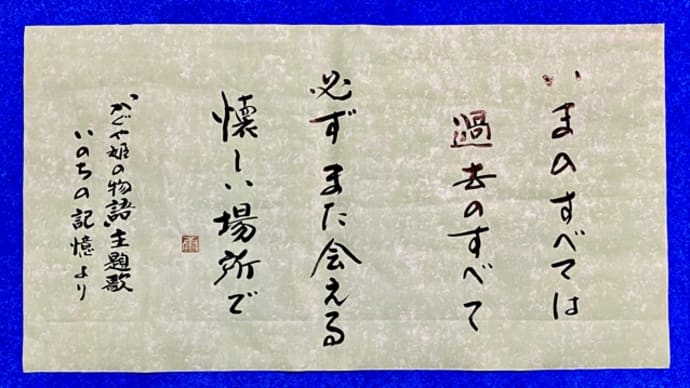 いまのすべては
過去のすべて
必ずまた会える
懐しい場所で
かぐや姫の物語主題歌
いのちの記憶より